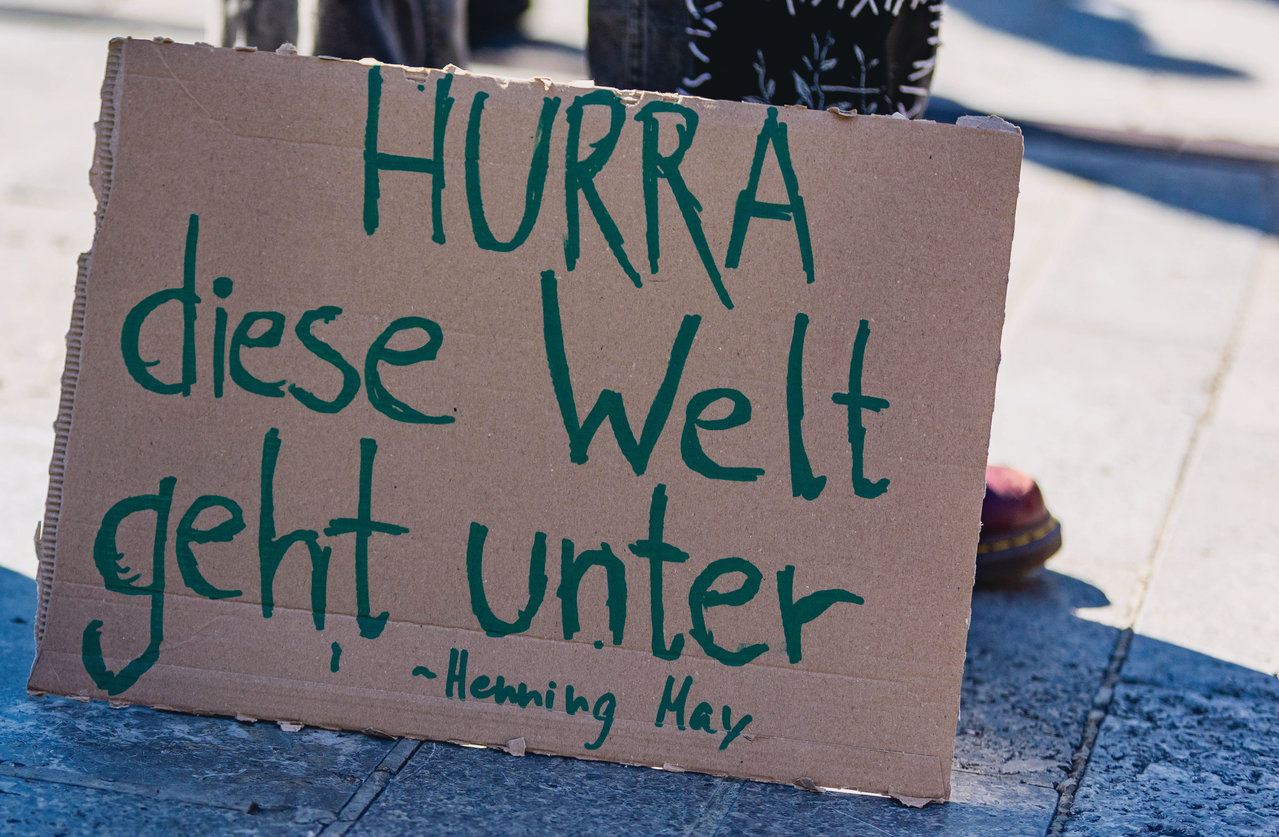 HURRA
diese Welt
geht unter
~Henning May